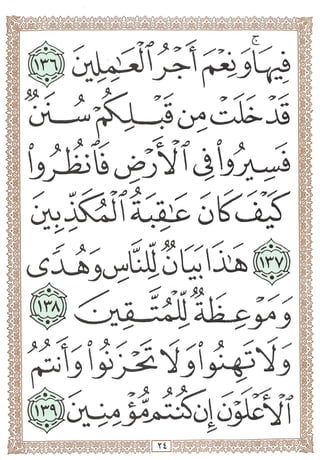 فِيهَا ۚ وَنِعْمَ أَجْرُ ٱلْعَـٰمِلِينَ ١٣٦
قَدْ خَلَتْ مِن قَبْلِكُمْ سُنَنٌ
فَسِيرُوا۟ فِى ٱلْأَرْضِ فَٱنظُرُوا۟
كَيْفَ كَانَ عَـٰقِبَةُ ٱلْمُكَذِّبِينَ
١٣٧ هَـٰذَا بَيَانٌ لِّلنَّاسِ وَهُدًى
وَمَوْعِظَةٌ لِّلْمُتَّقِينَ ١٣٨
وَلَا تَهِنُوا۟ وَلَا تَحْزَنُوا۟ وَأَنتُمُ
ٱلْأَعْلَوْنَ إِن كُنتُم مُّؤْمِنِينَ ١٣٩
٢٤